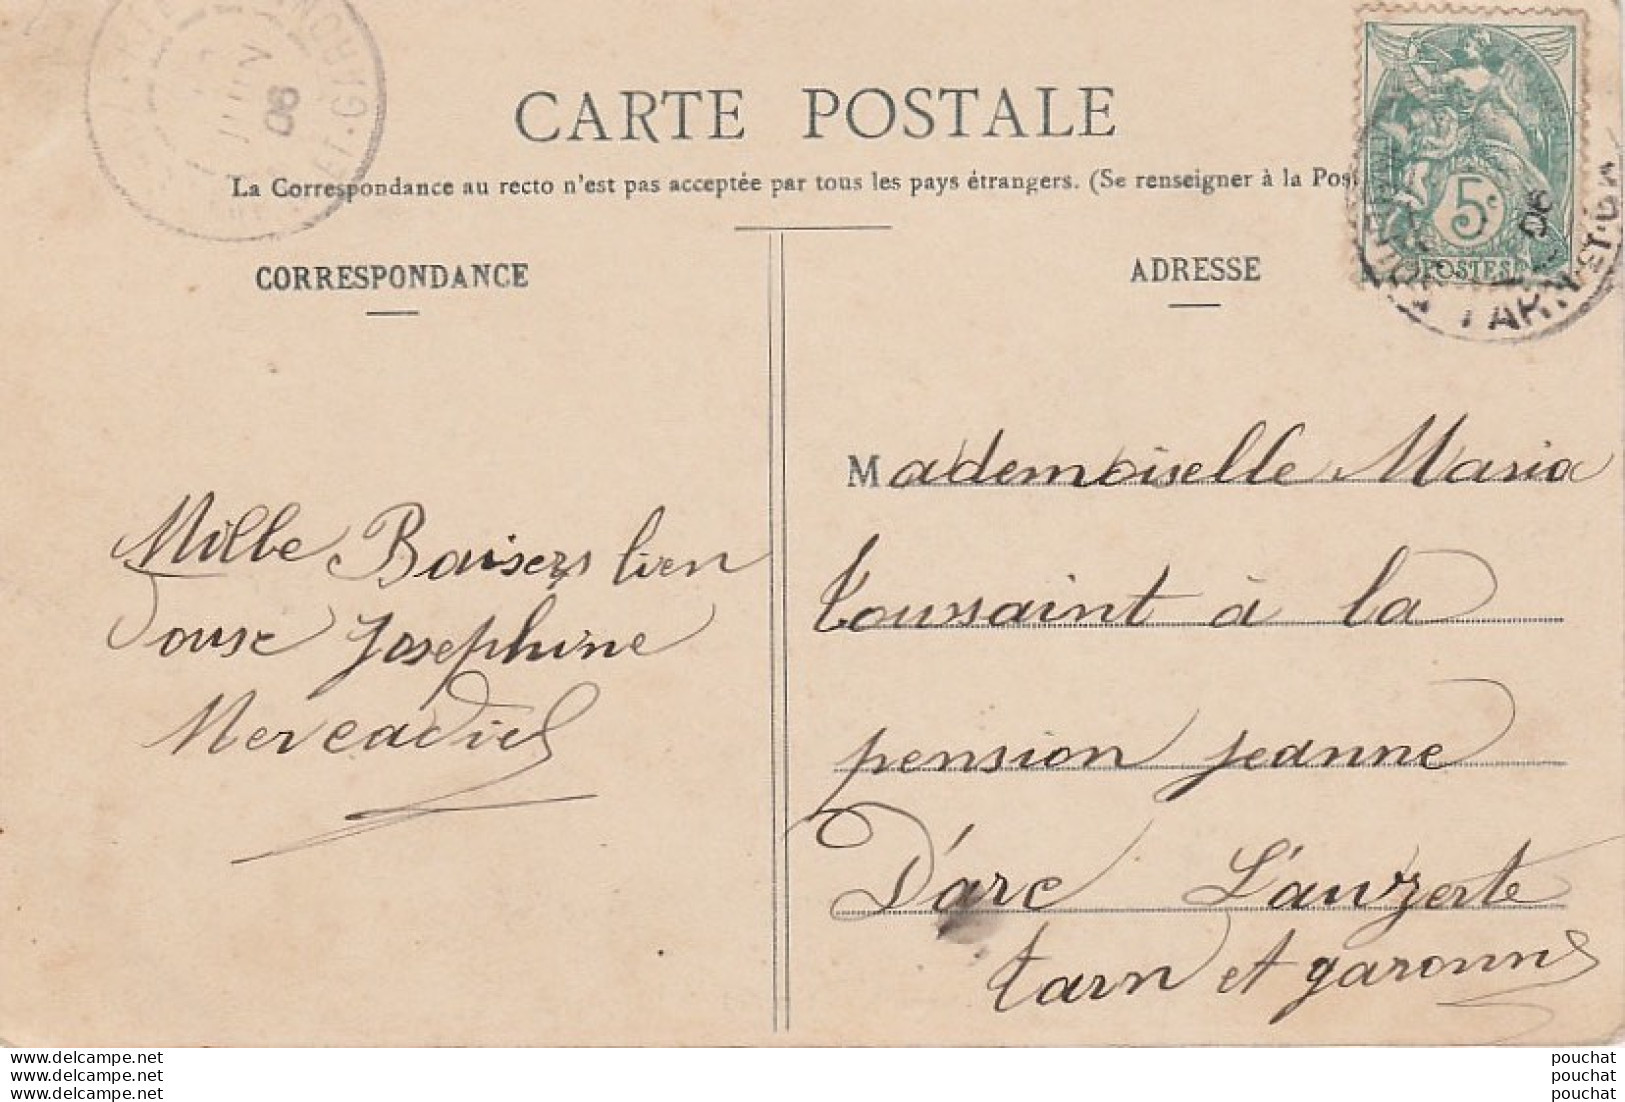 CARTE POSTALE
La Correspondance au recto n'est pas acceptée par tous les pays étrangers. (Se renseigner à la Pos
CORRESPONDANCE
Mille Baisers bien
Douse Josephine
Mercadiel
ADRESSE
Mademoiselle Maria
toussaint à la
pension jeanne
D'arc L'auzerte
tarn et garonne
5c
POSTES
JUIN
06
ET-G
06
TARN-ET-
www.delcampe.net
www.delcampe.net
www.delcampe.net
pouchat
pouchat
pouchat